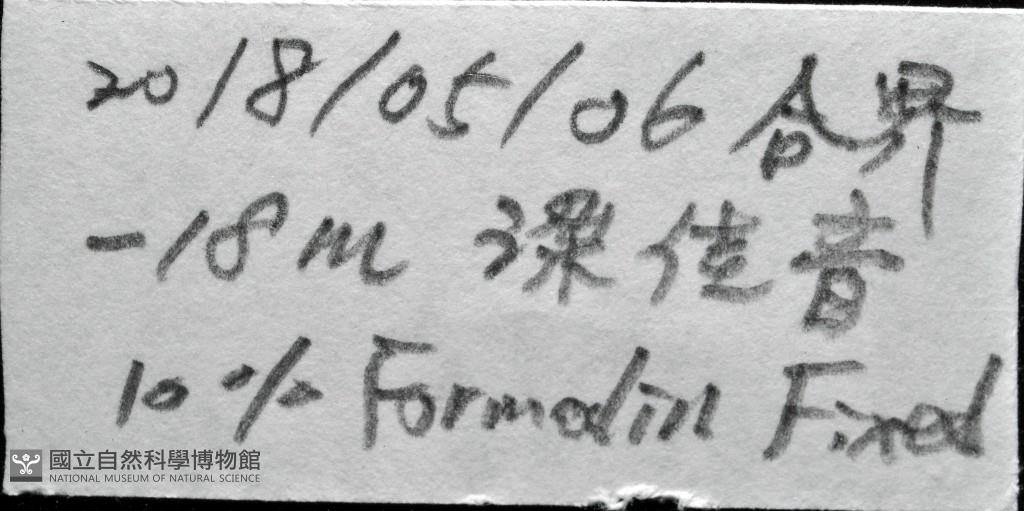 2018/05/06 合界
-18m 深佳音
10% Formalin Fixed
國立自然科學博物館
NATIONAL MUSEUM OF NATURAL SCIENCE